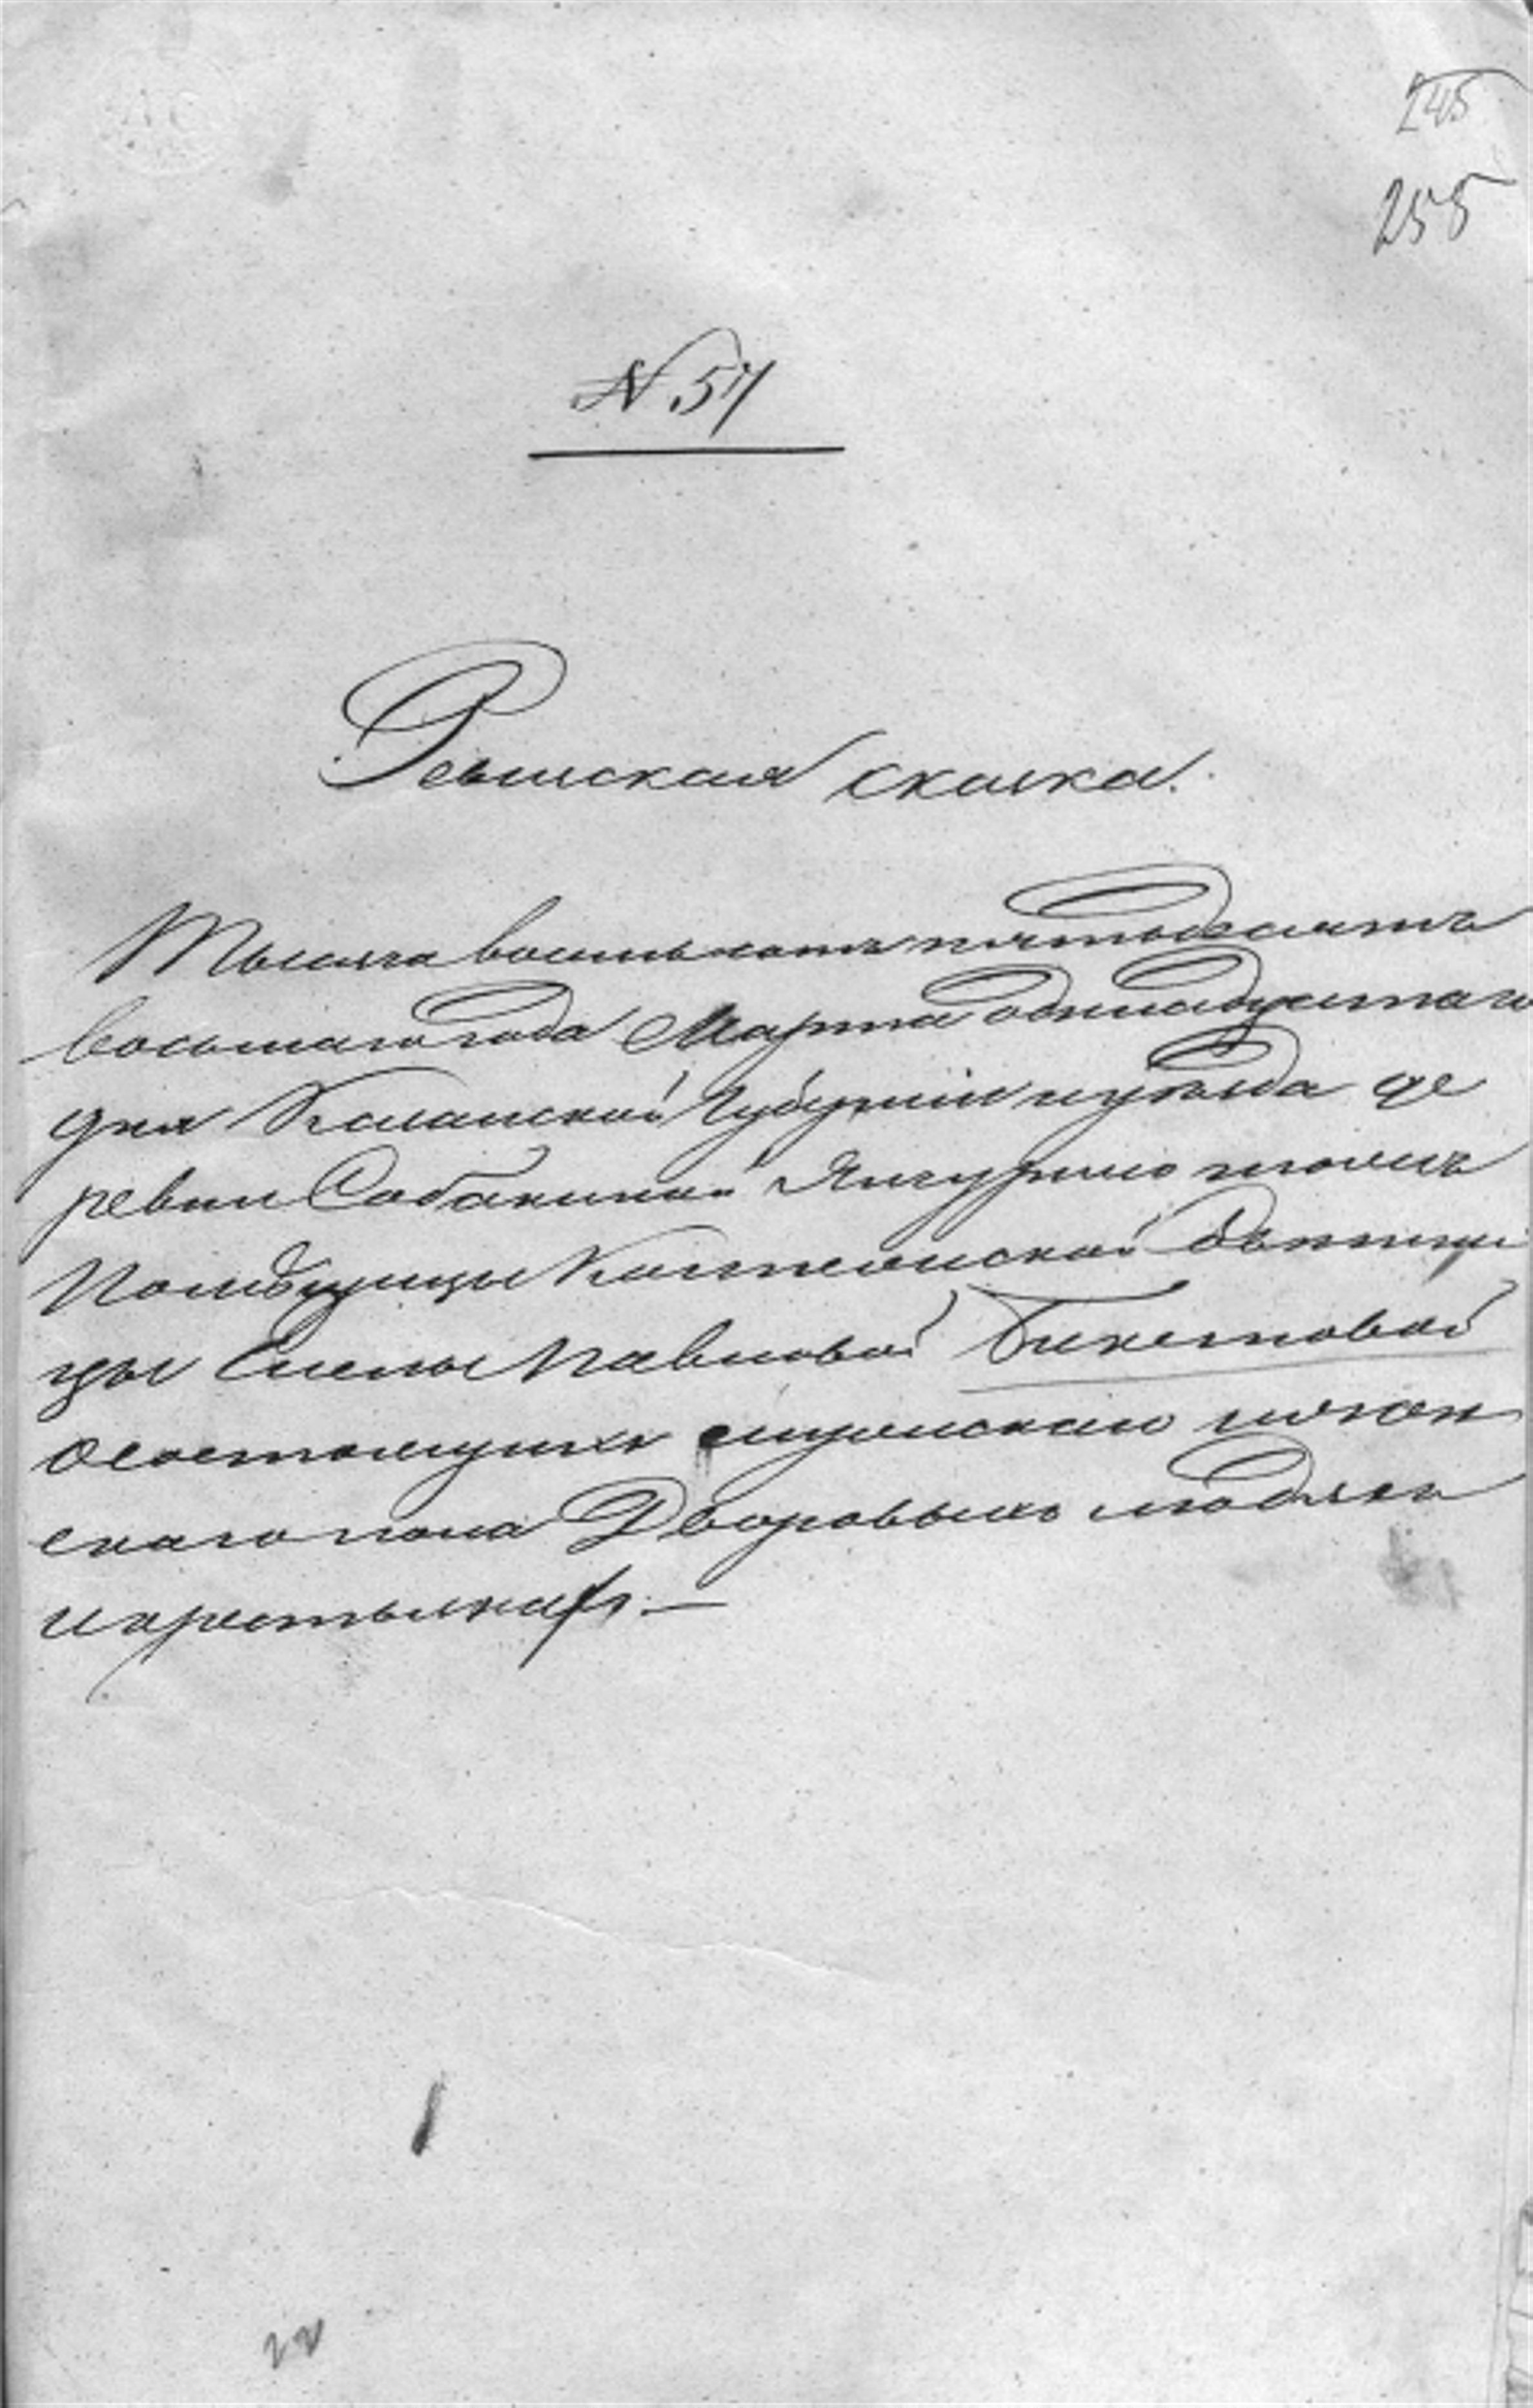 245
255
N. 57
Ревизская сказка.
Тысяча восемьсотъ пятьдесятъ
восьмаго года Марта одинадцатаго
дня Казанской Губерніи и уѣзда де
ревни Собакиной тожъ
Помѣщицы
цы Елены Павловой Бекетовой
о состоящихъ мужскаго и женс
скаго пола Дворовыхъ людяхъ
и крестьянахъ. —
22